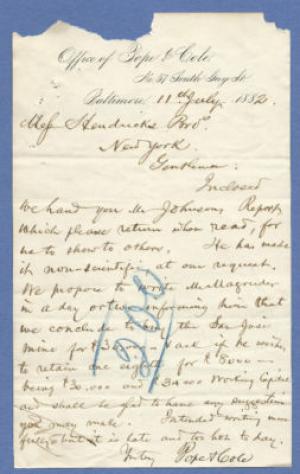 Office of Pope & Cole
No 57 South Gay St
Baltimore, 11th July 1882
Mess Hendricks Bros.
New York.
Gentlemen:
Inclosed
we hand you Mr Johnsons Report,
which please return when read, for
us to show to others. He has made
it non-scientific at our request.
We propose to write McMagruder
in a day or two informing him that
we conclude to buy the San José
mine for $ and ask if he wishes
to retain one eighth for $ 8000 —
being $30.000 and $34.000 Working Capital
and shall be glad to have any suggestion
you may make. Intended writing more
fully but it is late and too hot to day.
Pope & Cole